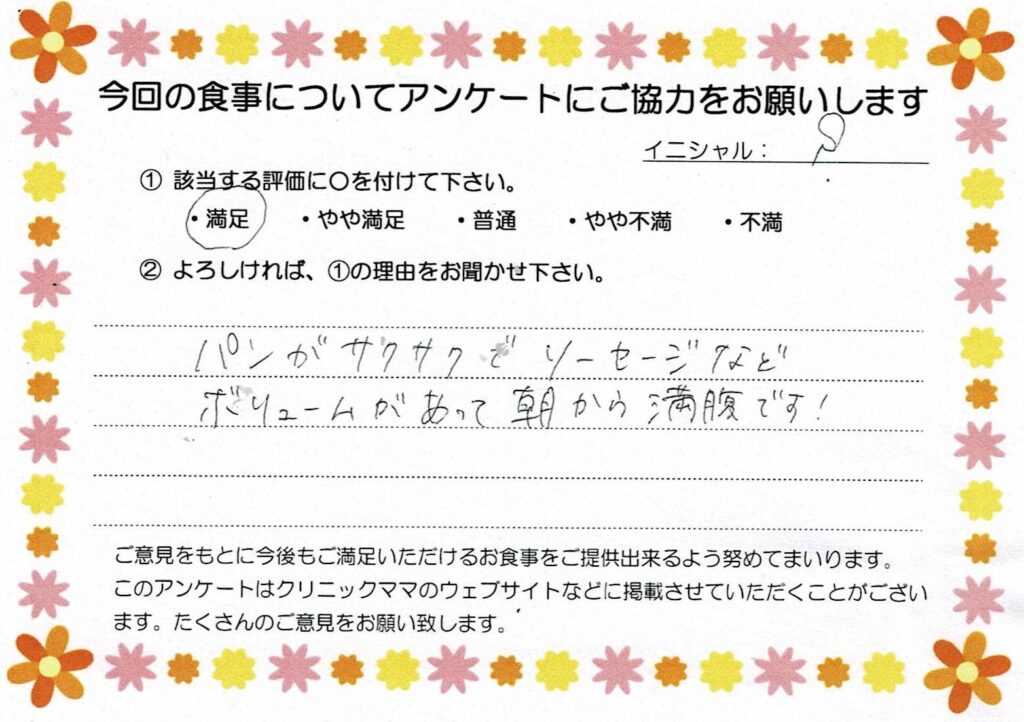 今回の食事についてアンケートにご協力をお願いします
イニシャル：
① 該当する評価に〇を付けて下さい。
・満足 ・やや満足 ・普通 ・やや不満 ・不満
② よろしければ、①の理由をお聞かせ下さい。
パンがサクサクで ソーセージなど
ボリュームがあって朝から満腹です！
ご意見をもとに今後もご満足いただけるお食事をご提供出来るよう努めてまいります。
このアンケートはクリニックママのウェブサイトなどに掲載させていただくことがござい
ます。たくさんのご意見をお願い致します。